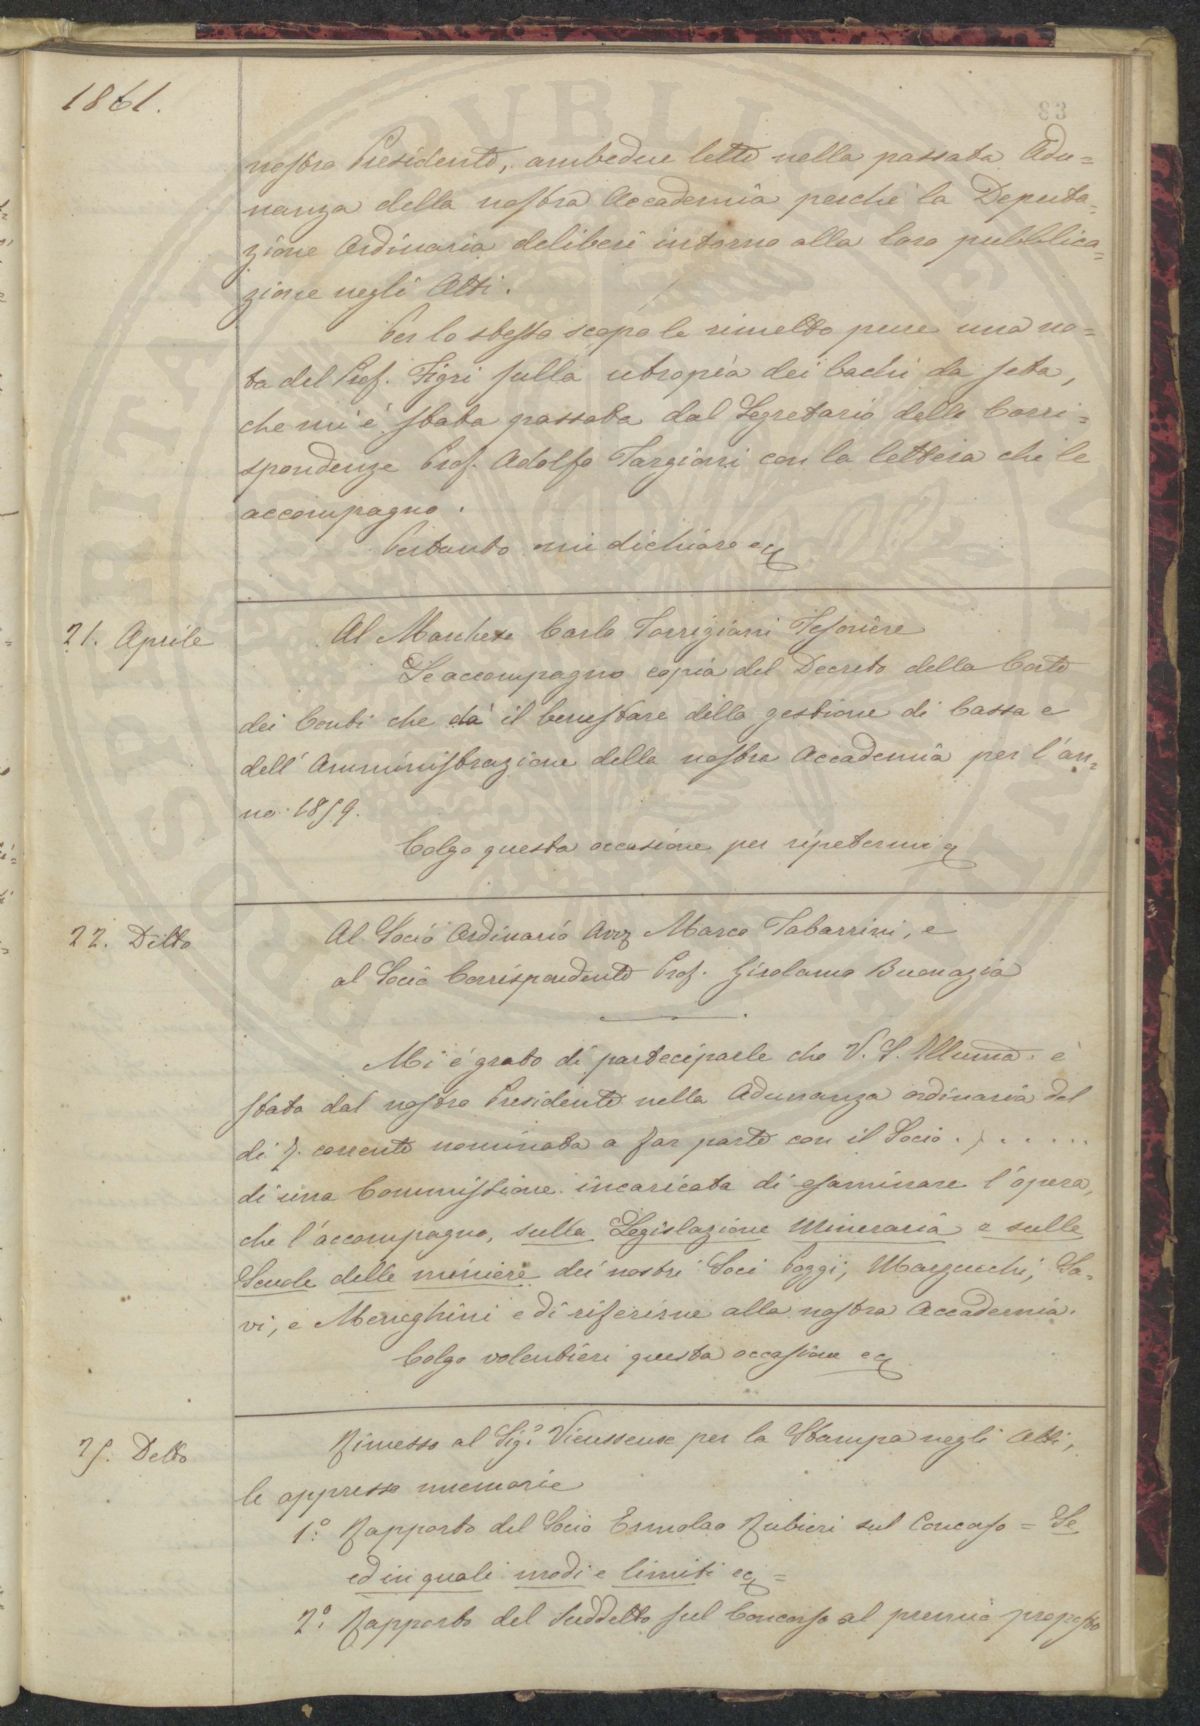 1861.
83
nostro Presidente, ambedue lette nella passata Adu=
nanza della nostra Accademia perchè la Deputa=
zione Ordinaria deliberi intorno alla loro pubblica=
zione negli Atti.
Per lo stesso scopo le rimetto pure una no=
ta del Prof. Tigri sulla utropèa dei bachi da seta,
che mi è stata passata dal Segretario delle Corri=
spondenze Prof. Adolfo Targioni con la lettera che le
accompagno.
Pertanto mi dichiaro ec
21. Aprile
Al Marchese Carlo Torrigiani Tesoriere
Le accompagno copia del Decreto della Corte
dei Conti che dà il benestare della gestione di Cassa e
dell' Amministrazione della nostra Accademia per l'an=
no 1859.
Colgo questa occasione per ripetermi ec
22. Detto
Al Socio Ordinario Avv Marco Tabarrini, e
al Socio Corrispondente Prof. Girolamo Buonazia
Mi è grato di parteciparle che V. S. Illuma. è
stata dal nostro Presidente nella Adunanza ordinaria del
di 7. corrente nominata a far parte con il Socio . . . . . . .
di una Commissione incaricata di esaminare l'opera,
che l'accompagno, sulla Legislazione Mineraria e sulle
Scuole delle miniere dei nostri Soci Poggi, Marzucchi, Sa=
vi, e Meneghini e di riferirne alla nostra Accademia.
Colgo volentieri questa occasione ec
25. Detto
Rimesso al Sigr. Vieusseux per la Stampa negli Atti,
le appresso memorie
1.° Rapporto del Socio Ermolao Rubieri sul Concorso = Se
ed in quali modi e limiti ec =
2.° Rapporto del Suddetto sul Concorso al premio proposto